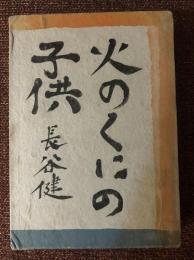 火のくにの
子供
長谷健